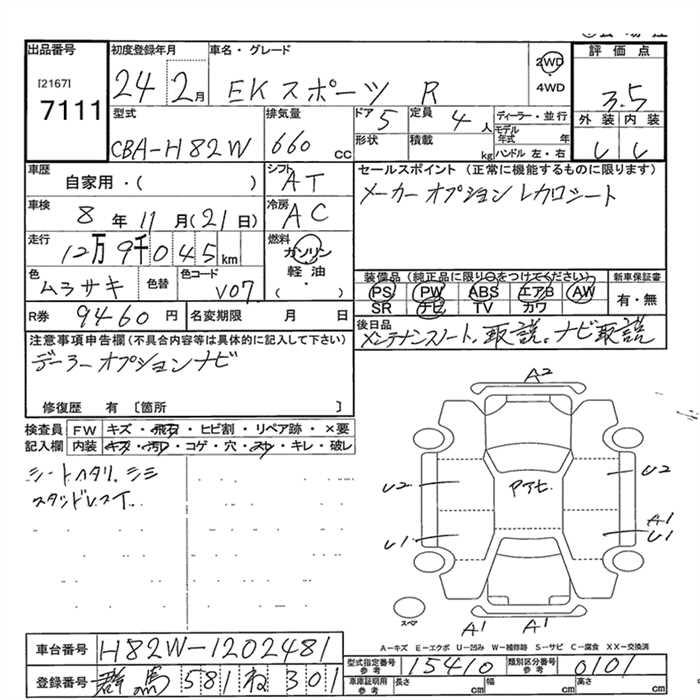 出品番号
[2167]
7111
初度登録年月
24 2月
車名・グレード
EKスポーツ R
2WD
4WD
評価点
3.5
外装 内装
型式
CBA-H82W
排気量
660 cc
ドア 5
形状
定員 4人
積載 kg
ディーラー・並行
モデル年式 年
ハンドル 左・右
車歴
自家用・( )
シフト
AT
セールスポイント (正常に機能するものに限ります)
メーカーオプション レカロシート
車検
8年11月(21日)
冷房
AC
走行
12万9千045km
燃料
ガソリン
軽油・
( )
色
ムラサキ
色替
色コード
V07
装備品(純正品に限り○をつけてください)
PS PW ABS エアB AW
SR ナビ TV カワ
新車保証書
有・無
R券 9460円
名変期限 月 日
後日品
メンテナンスノート、取説、ナビ取説
注意事項申告欄(不具合内容等は具体的に記入して下さい)
デーラーオプションナビ
修復歴 有 〔箇所 〕
検査員 FW キズ・飛石・ヒビ割・リペア跡・×要
記入欄 内装 キズ・汚れ・コゲ・穴・スレ・キレ・破レ
シートヘタリ、シミ
A2
U2
U2
U1
A1
U1
スペア
A1
A1
A-キズ E-エクボ U-凹み W-補修跡 S-サビ C-腐食 XX-交換済
車台番号 H82W-1202481
登録番号 群馬 581 ね 301
型式指定番号 参考 15410
類別区分番号 参考 0101
車庫証明用 参考 長さ cm 幅 cm 高さ cm